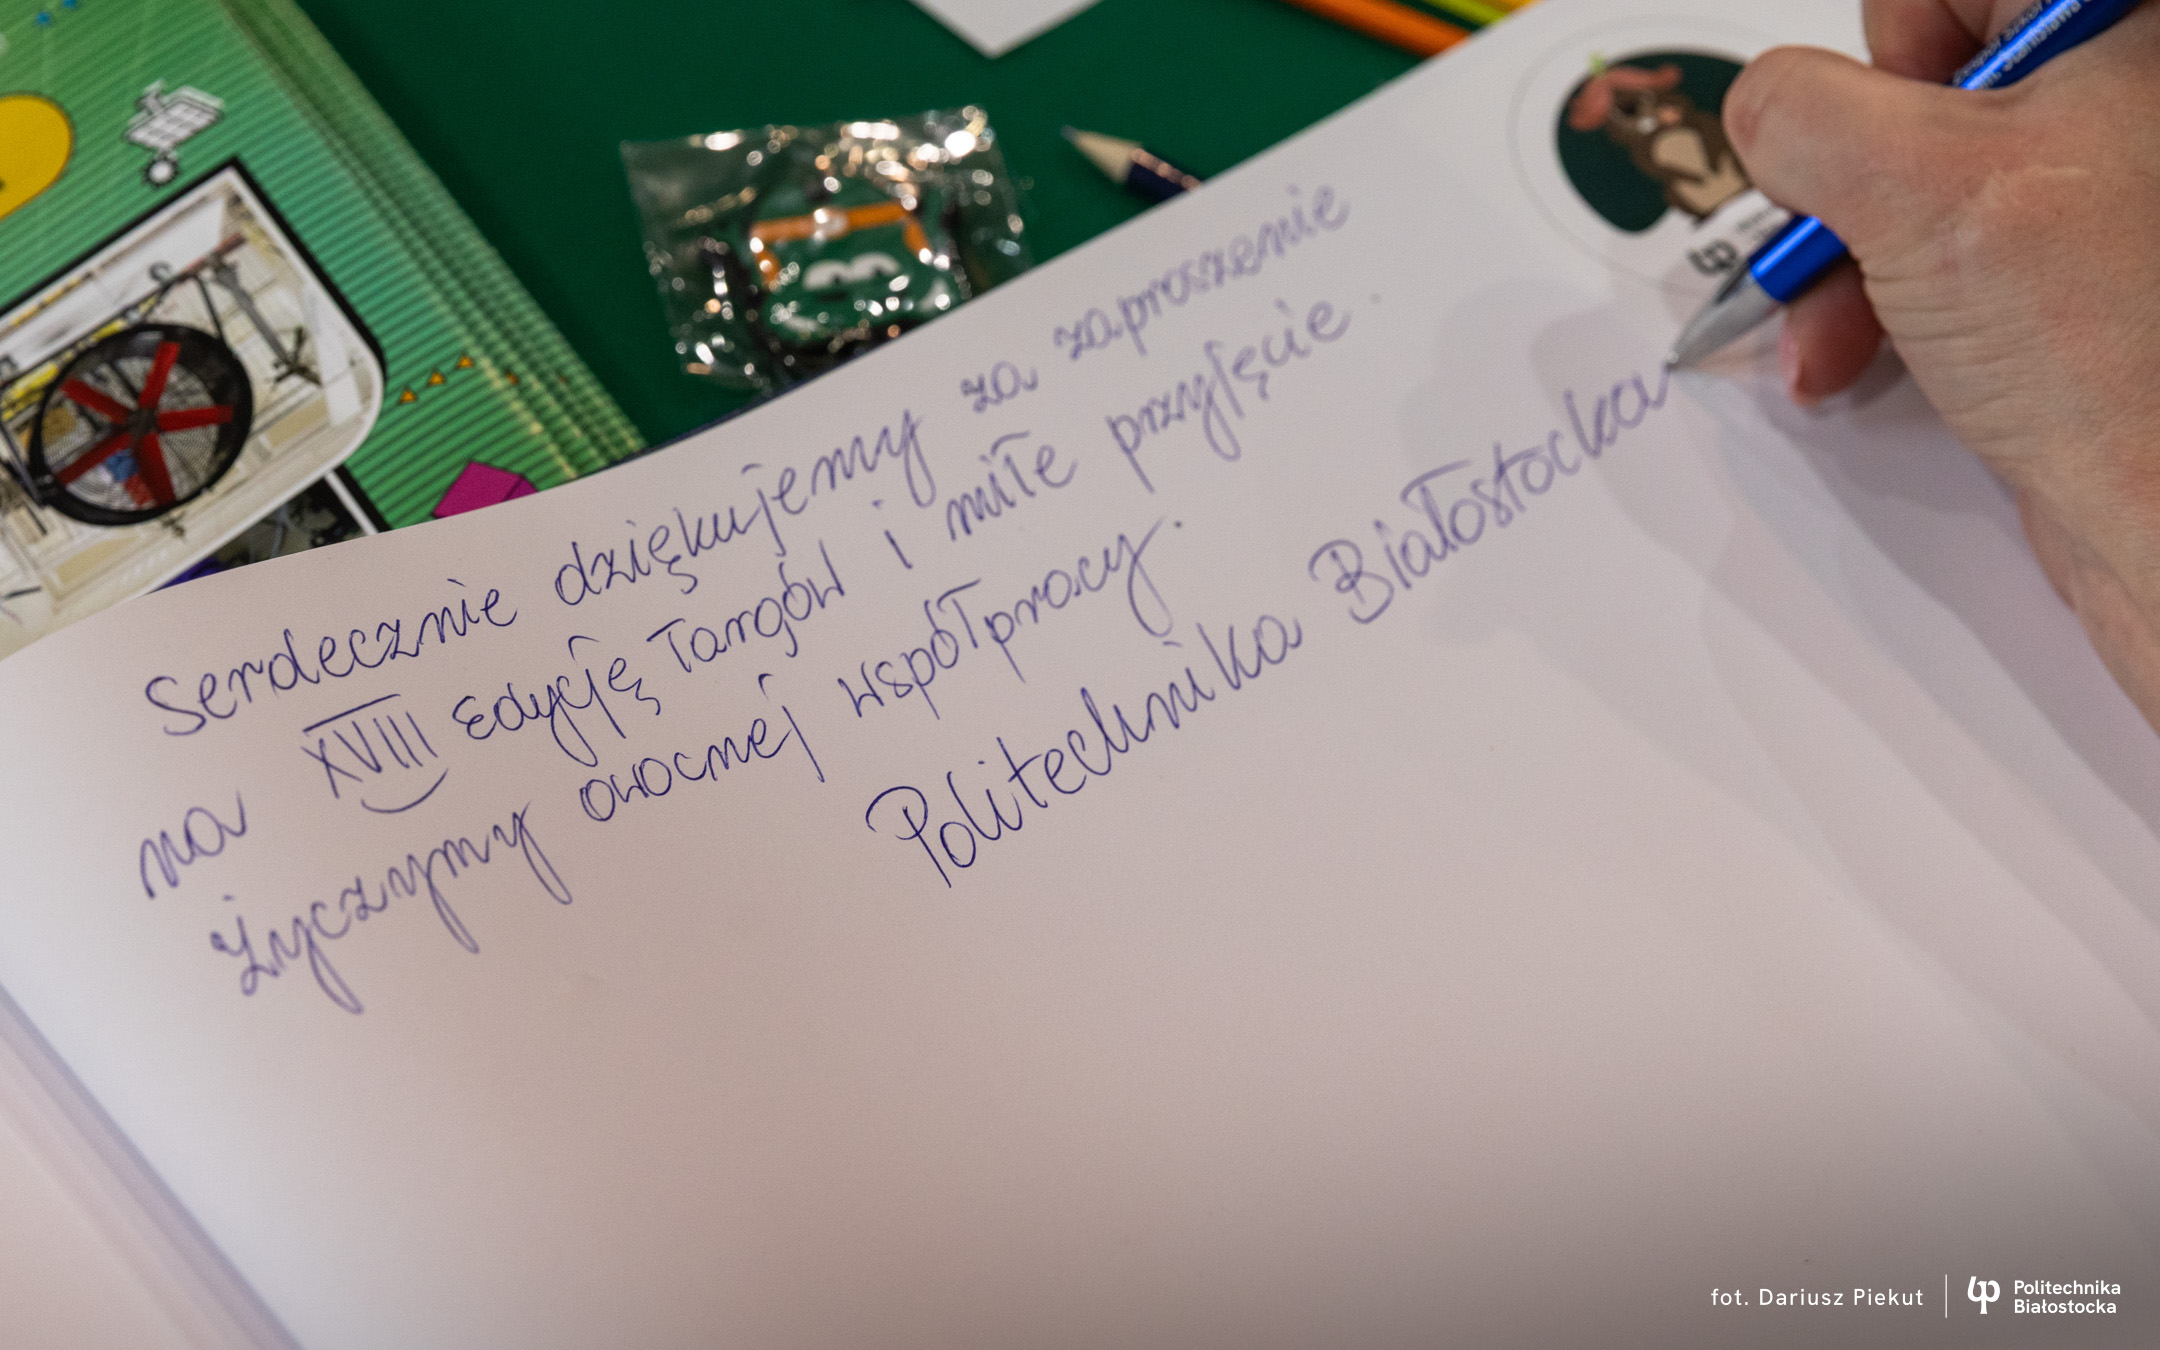 Serdecznie dziękujemy za zaproszenie
na XVIII edycję Targów i miłe przyjęcie.
Życzymy owocnej współpracy.
Politechnika Białostocka
fot. Dariusz Piekut
Politechnika
Białostocka